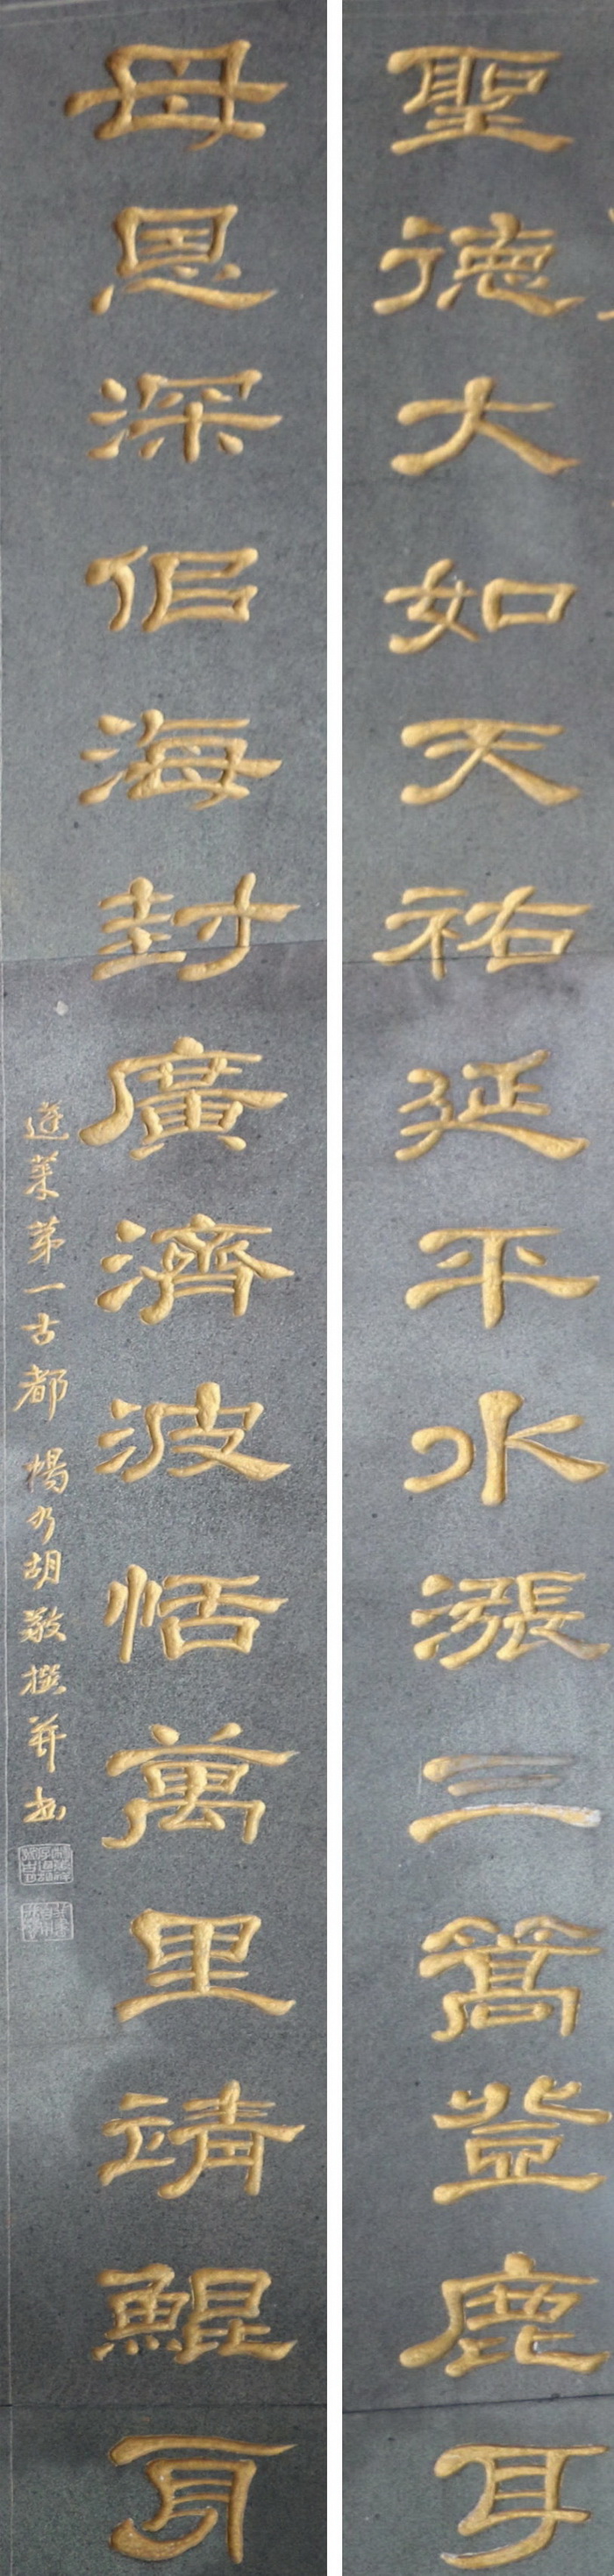 聖德大如天祐延平水漲三篙登鹿耳
母恩深佀海封廣濟波恬萬里靖鯤身
蓬萊第一古都 乃胡敬撰并書